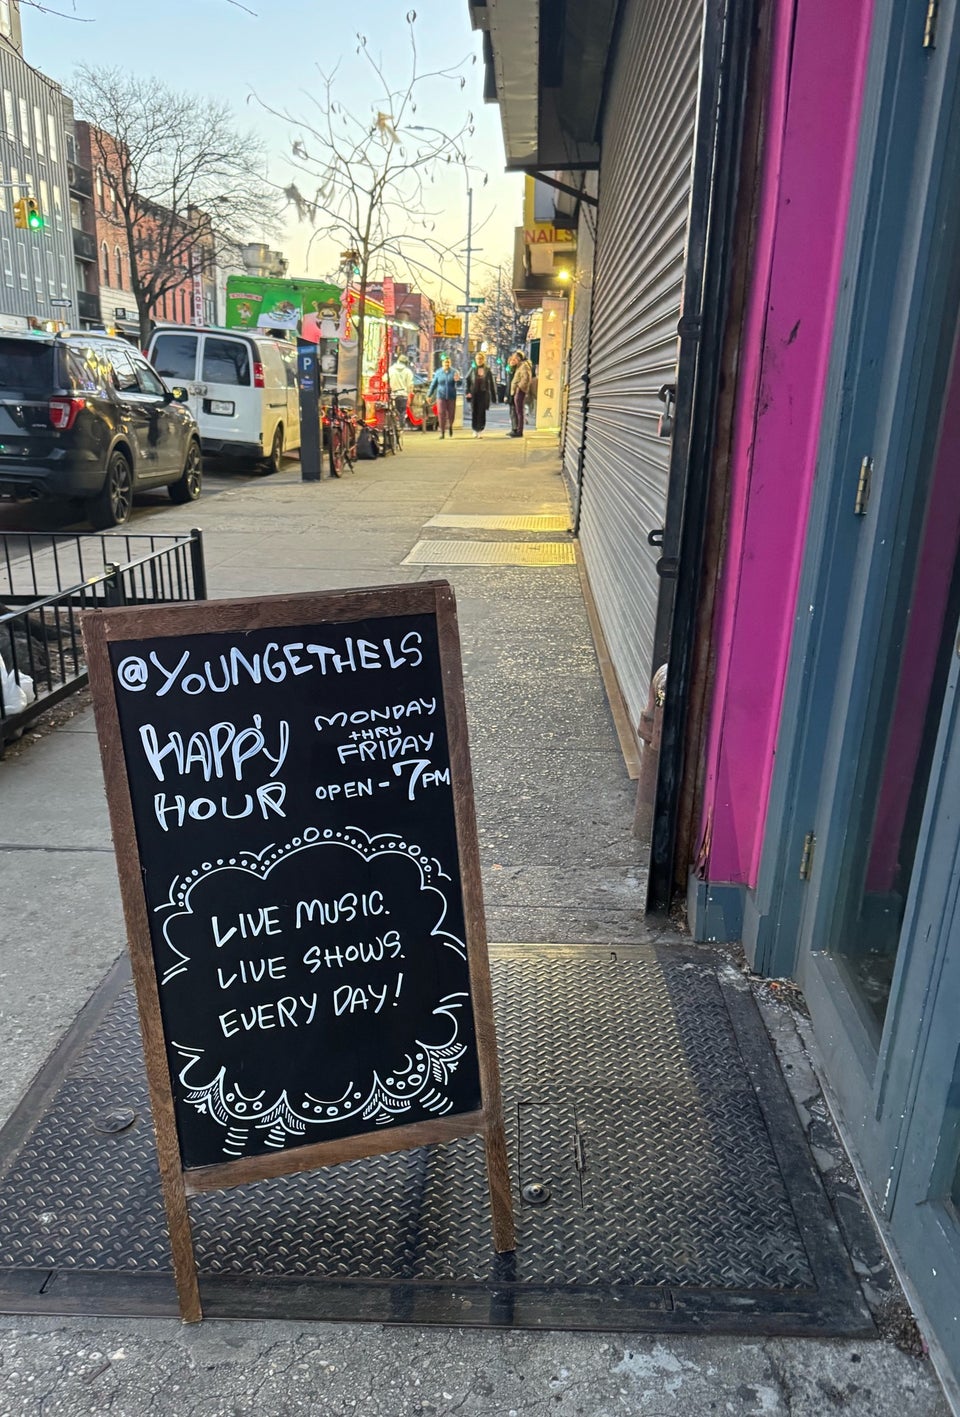 @YOUNGETHELS
HAPPY
HOUR
MONDAY
THRU
FRIDAY
OPEN - 7PM
LIVE MUSIC.
LIVE SHOWS.
EVERY DAY!
NAILS
P